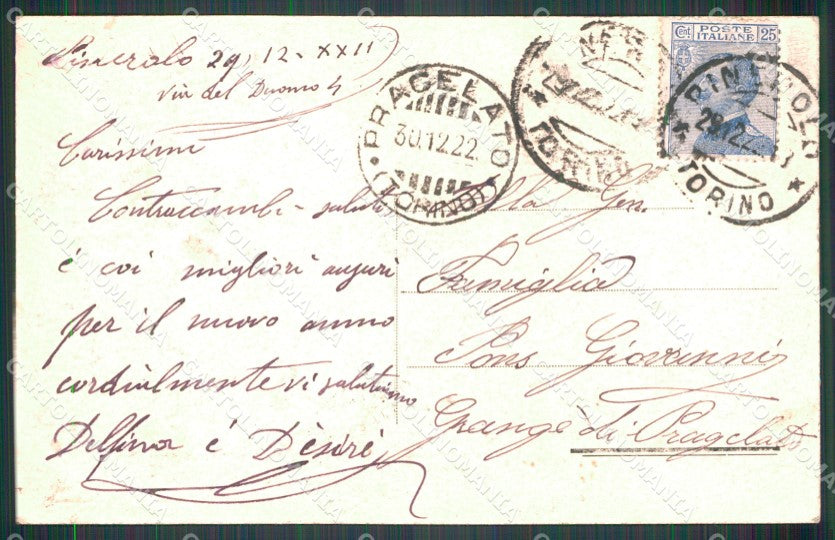 Pinerolo 29, 12 - XXII
via del Duomo 4
Carissimi
Contraccambi- saluti
é coi migliori auguri
per il nuovo anno
cordialmente vi salutiamo
Delfina é Dèsiré
PRAGELATO
30.12.22.
(TORINO)
TORINO
Cent POSTE ITALIANE 25
PINEROLO
29.12.22
TORINO
Alla Gen.
Famiglia
Pons Giovanni
Grange di Pragelato
CARTOLINOMANIA